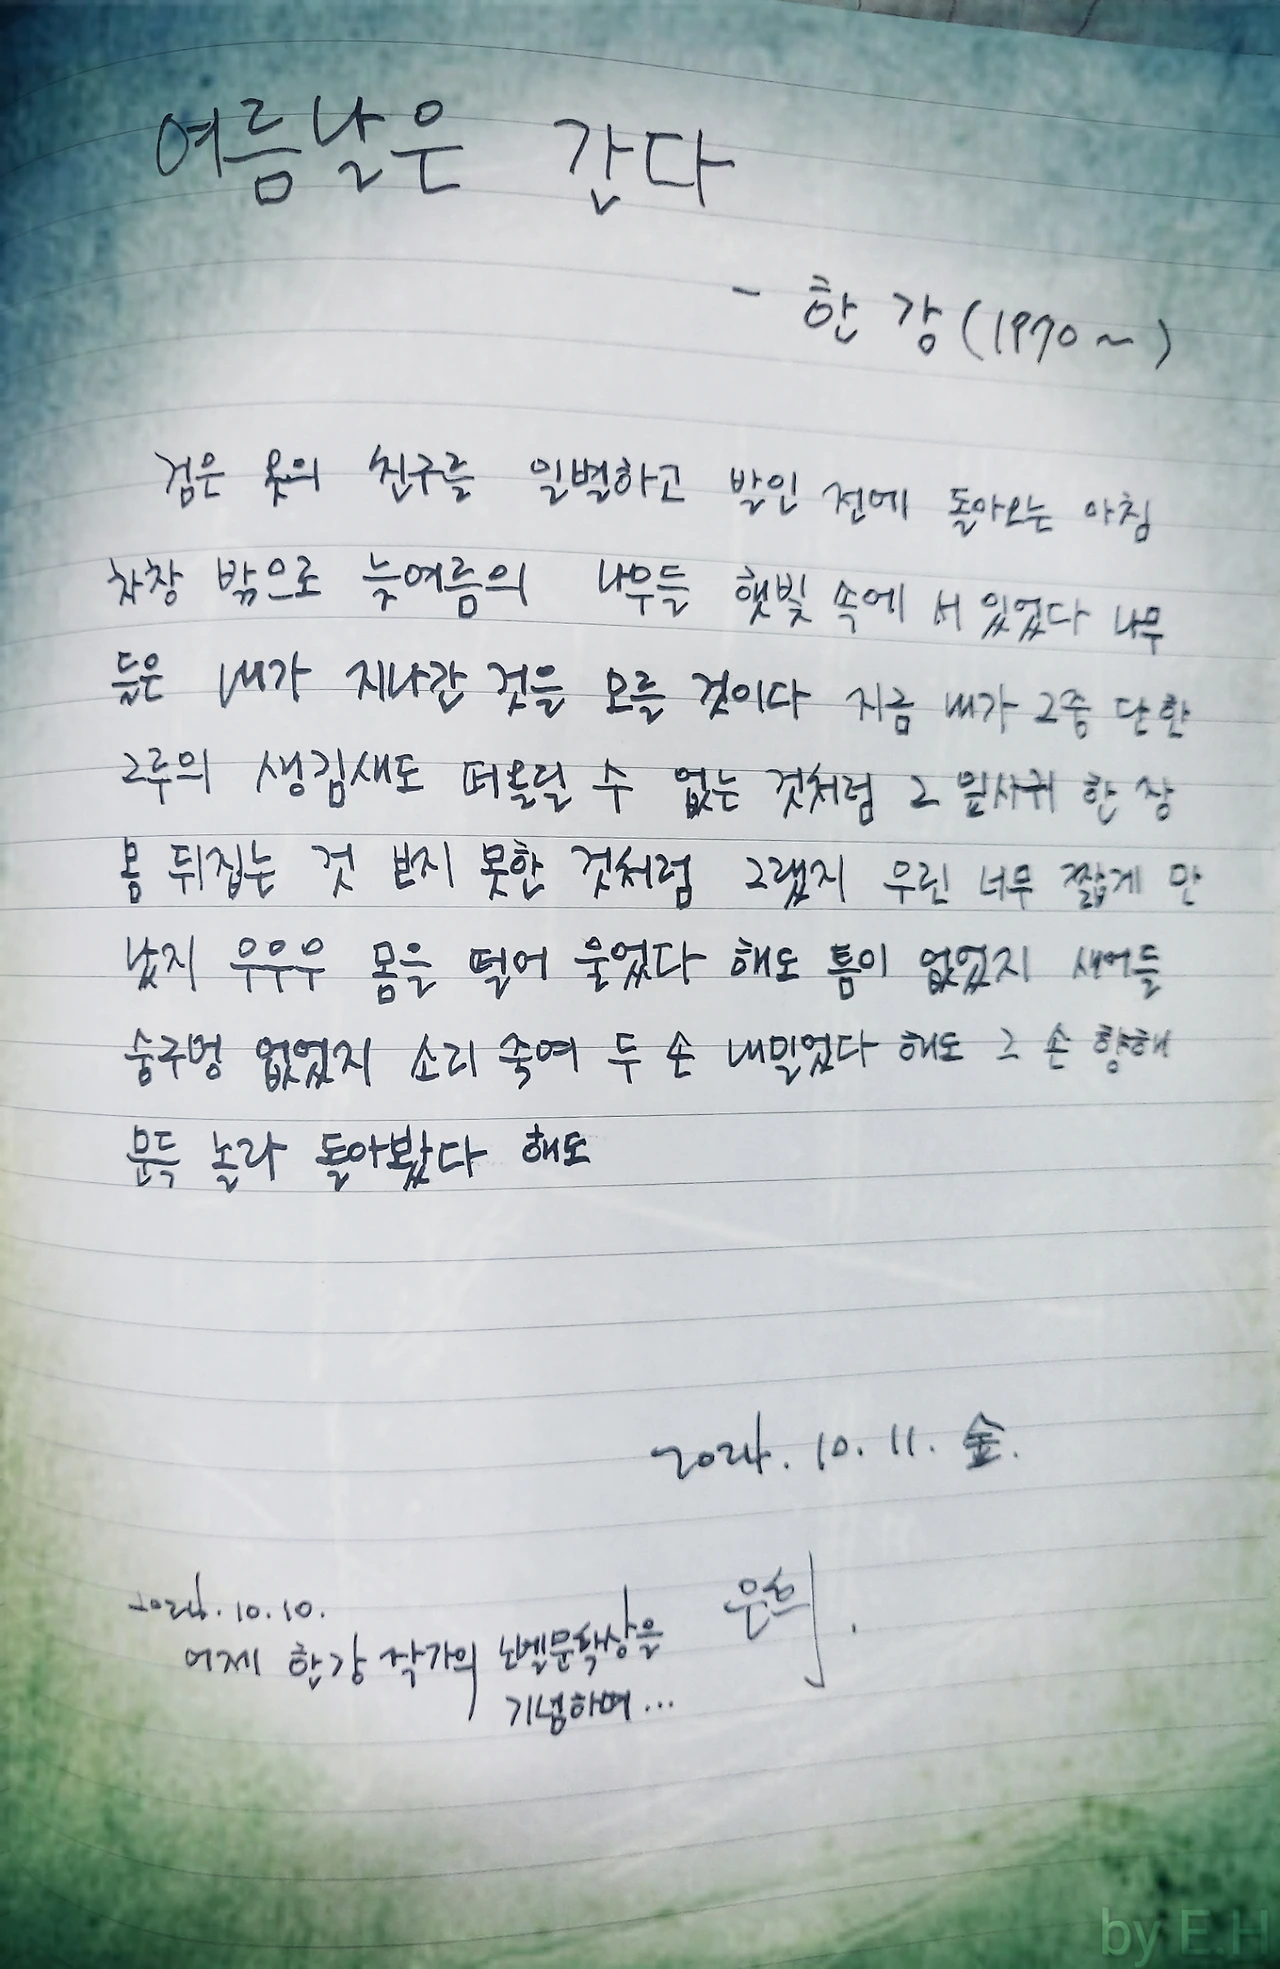 여름날은 간다
- 한 강 (1970~)
검은 옷의 친구를 일별하고 발인 전에 돌아오는 아침
차창 밖으로 늦여름의 나무들 햇빛 속에 서 있었다 나무
들은 내가 지나간 것을 모를 것이다 지금 내가 그중 단 한
그루의 생김새도 떠올릴 수 없는 것처럼 그 잎사귀 한 장
몸 뒤집는 것 보지 못한 것처럼 그랬지 우린 너무 짧게 만
났지 우우우 몸을 떨어 울었다 해도 틈이 없었지 새어들
숨구멍 없었지 소리 죽여 두 손 내밀었다 해도 그 손 향해
문득 놀라 돌아봤다 해도
2024. 10. 11. 金.
은희.
2024. 10. 10.
어제 한강 작가의 노벨문학상을
기념하며...
by E.H